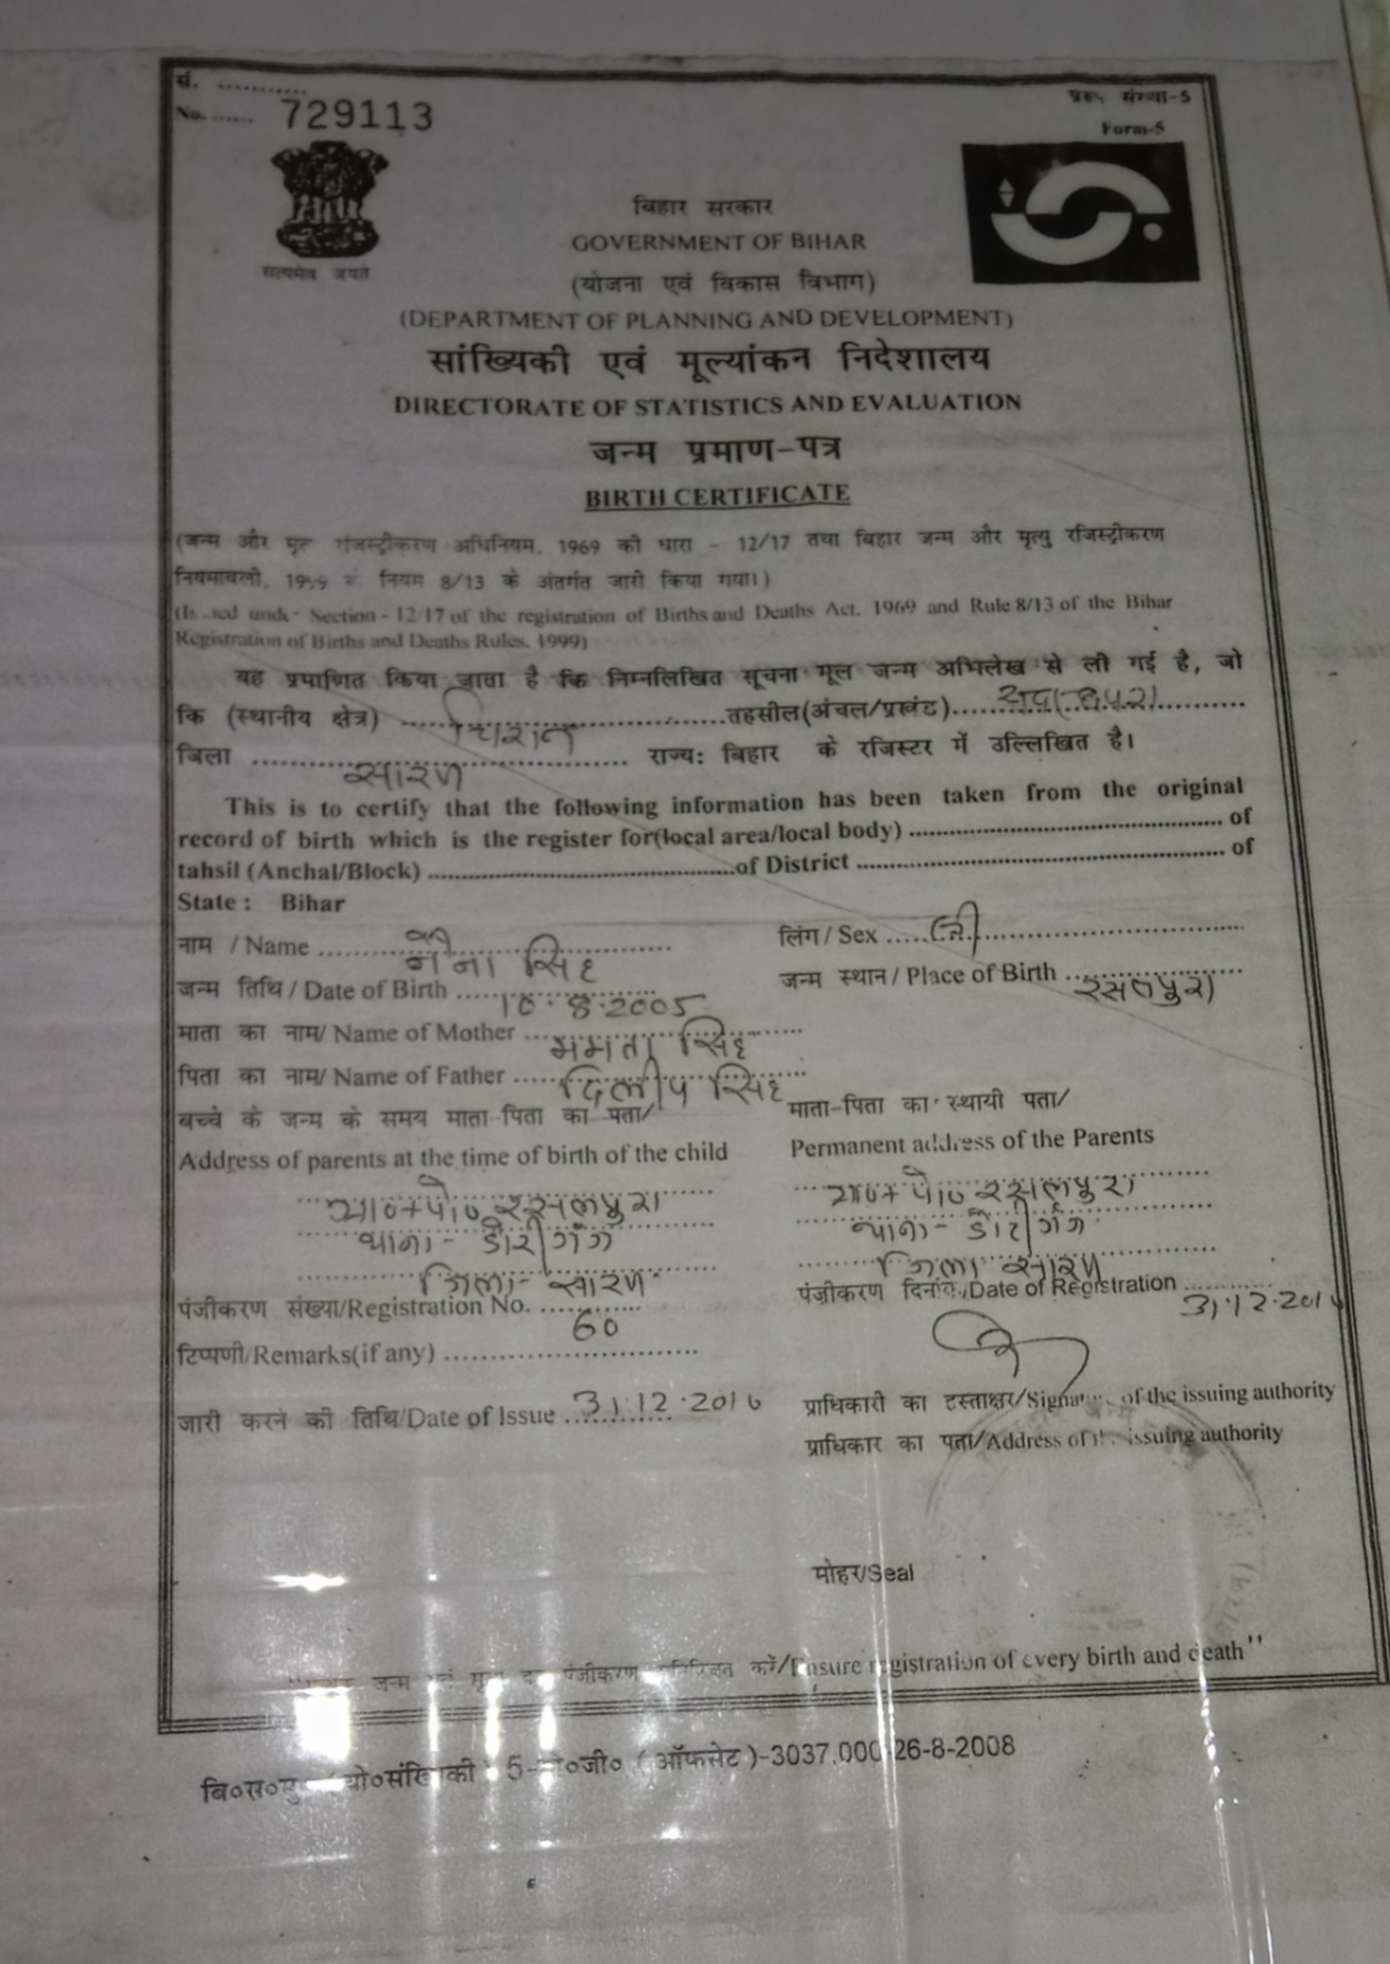 सं. ............
No. ........ 729113
प्ररूप संख्या-5
Form-5
सत्यमेव जयते
बिहार सरकार
GOVERNMENT OF BIHAR
(योजना एवं विकास विभाग)
(DEPARTMENT OF PLANNING AND DEVELOPMENT)
सांख्यिकी एवं मूल्यांकन निदेशालय
DIRECTORATE OF STATISTICS AND EVALUATION
जन्म प्रमाण-पत्र
BIRTH CERTIFICATE
(जन्म और मृत्यु रजिस्ट्रीकरण अधिनियम, 1969 की धारा - 12/17 तथा बिहार जन्म और मृत्यु रजिस्ट्रीकरण
नियमावली, 1999 के नियम 8/13 के अंतर्गत जारी किया गया।)
(Issued under Section - 12/17 of the registration of Births and Deaths Act. 1969 and Rule 8/13 of the Bihar
Registration of Births and Deaths Rules, 1999)
यह प्रमाणित किया जाता है कि निम्नलिखित सूचना मूल जन्म अभिलेख से ली गई है, जो
कि (स्थानीय क्षेत्र) .......... तहसील(अंचल/प्रखंड)..........
जिला .......... सारण .......... राज्य: बिहार के रजिस्टर में उल्लिखित है।
This is to certify that the following information has been taken from the original
record of birth which is the register for(local area/local body) .......... of
tahsil (Anchal/Block) .......... of District .......... of
State : Bihar
नाम / Name .......... नैना सिंह लिंग / Sex ..... स्त्री
जन्म तिथि / Date of Birth .......... 10.8.2005 जन्म स्थान / Place of Birth .......... रसलपुरा
माता का नाम/ Name of Mother ..... ममता सिंह
पिता का नाम/ Name of Father ..... दिलीप सिंह
बच्चे के जन्म के समय माता-पिता का पता/ माता-पिता का स्थायी पता/
Address of parents at the time of birth of the child Permanent address of the Parents
ग्रा०+पो० रसलपुरा ग्रा०+पो० रसलपुरा
थाना- डोरीगंज थाना- डोरीगंज
जिला- सारण जिला सारण
पंजीकरण संख्या/Registration No. .......... 60 पंजीकरण दिनांक/Date of Registration .......... 31.12.2016
टिप्पणी/Remarks(if any) ..........
जारी करने की तिथि/Date of Issue .......... 31.12.2016 प्राधिकारी का हस्ताक्षर/Signature of the issuing authority
प्राधिकार का पता/Address of the issuing authority
मोहर/Seal
जन्म एवं पंजीकरण सुनिश्चित करें/Ensure registration of every birth and death"
5- (ऑफसेट)-3037,000 26-8-2008